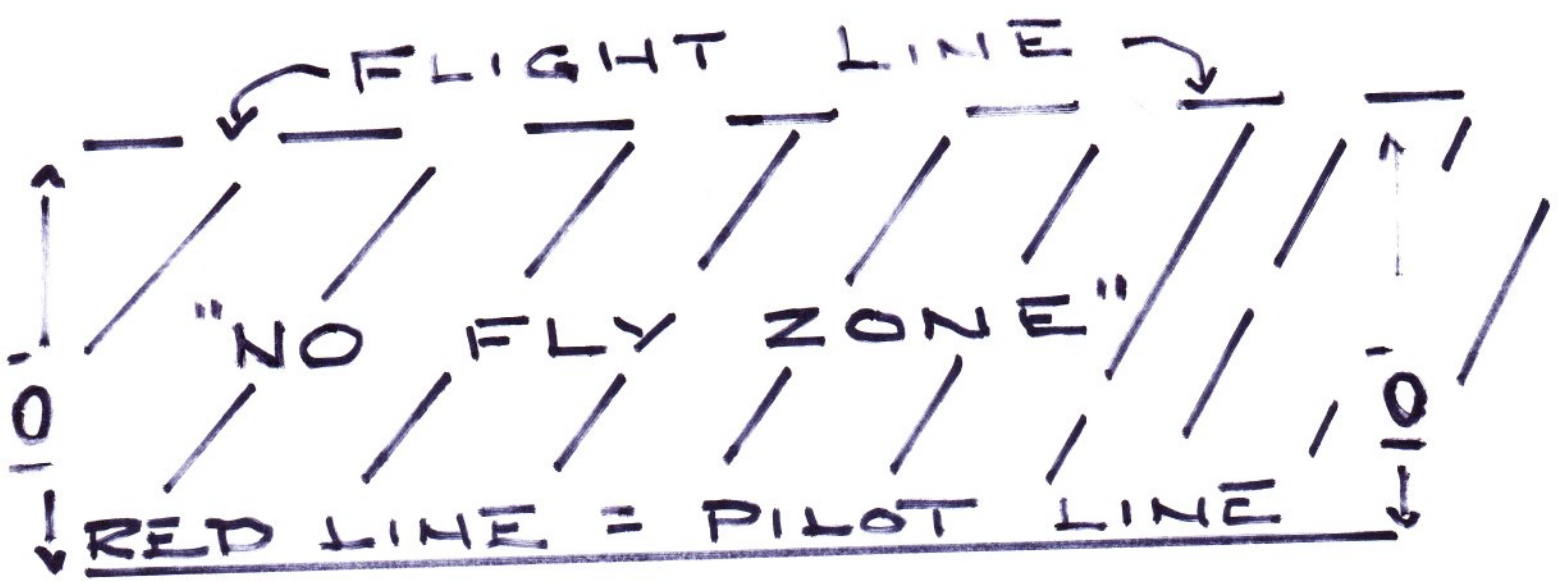 FLIGHT LINE
"NO FLY ZONE"
10'
10'
RED LINE = PILOT LINE